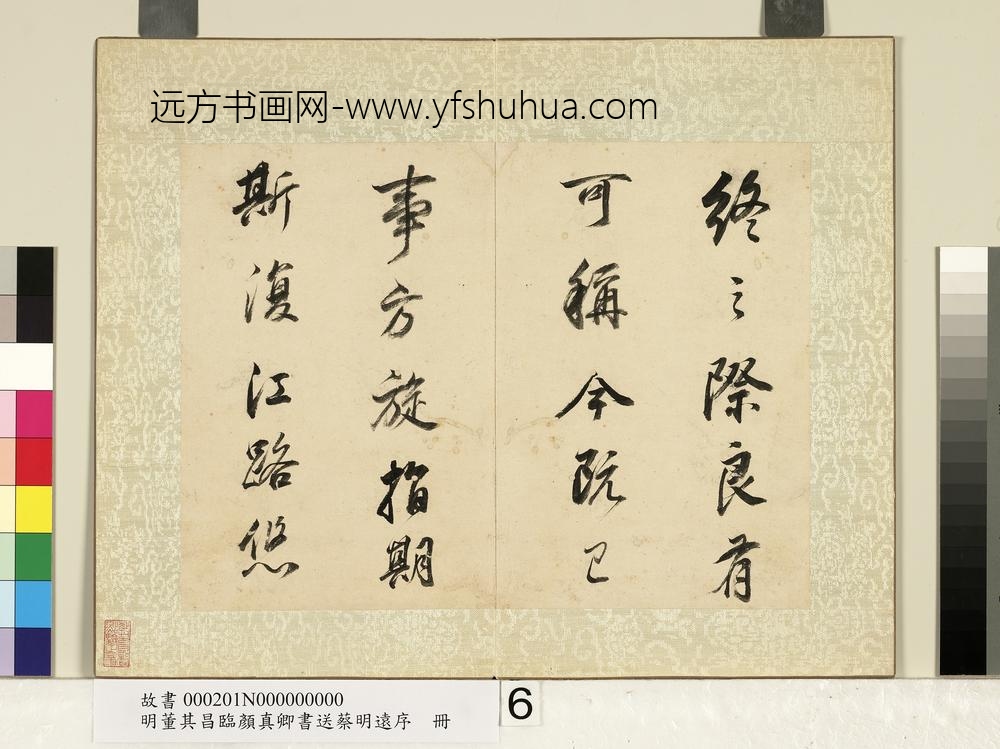 远方书画网-www.yfshuhua.com
終之際良有
可稱今既已
事方旋指期
斯復江路悠
故書 000201N000000000
明董其昌臨顏真卿書送蔡明遠序 冊
6